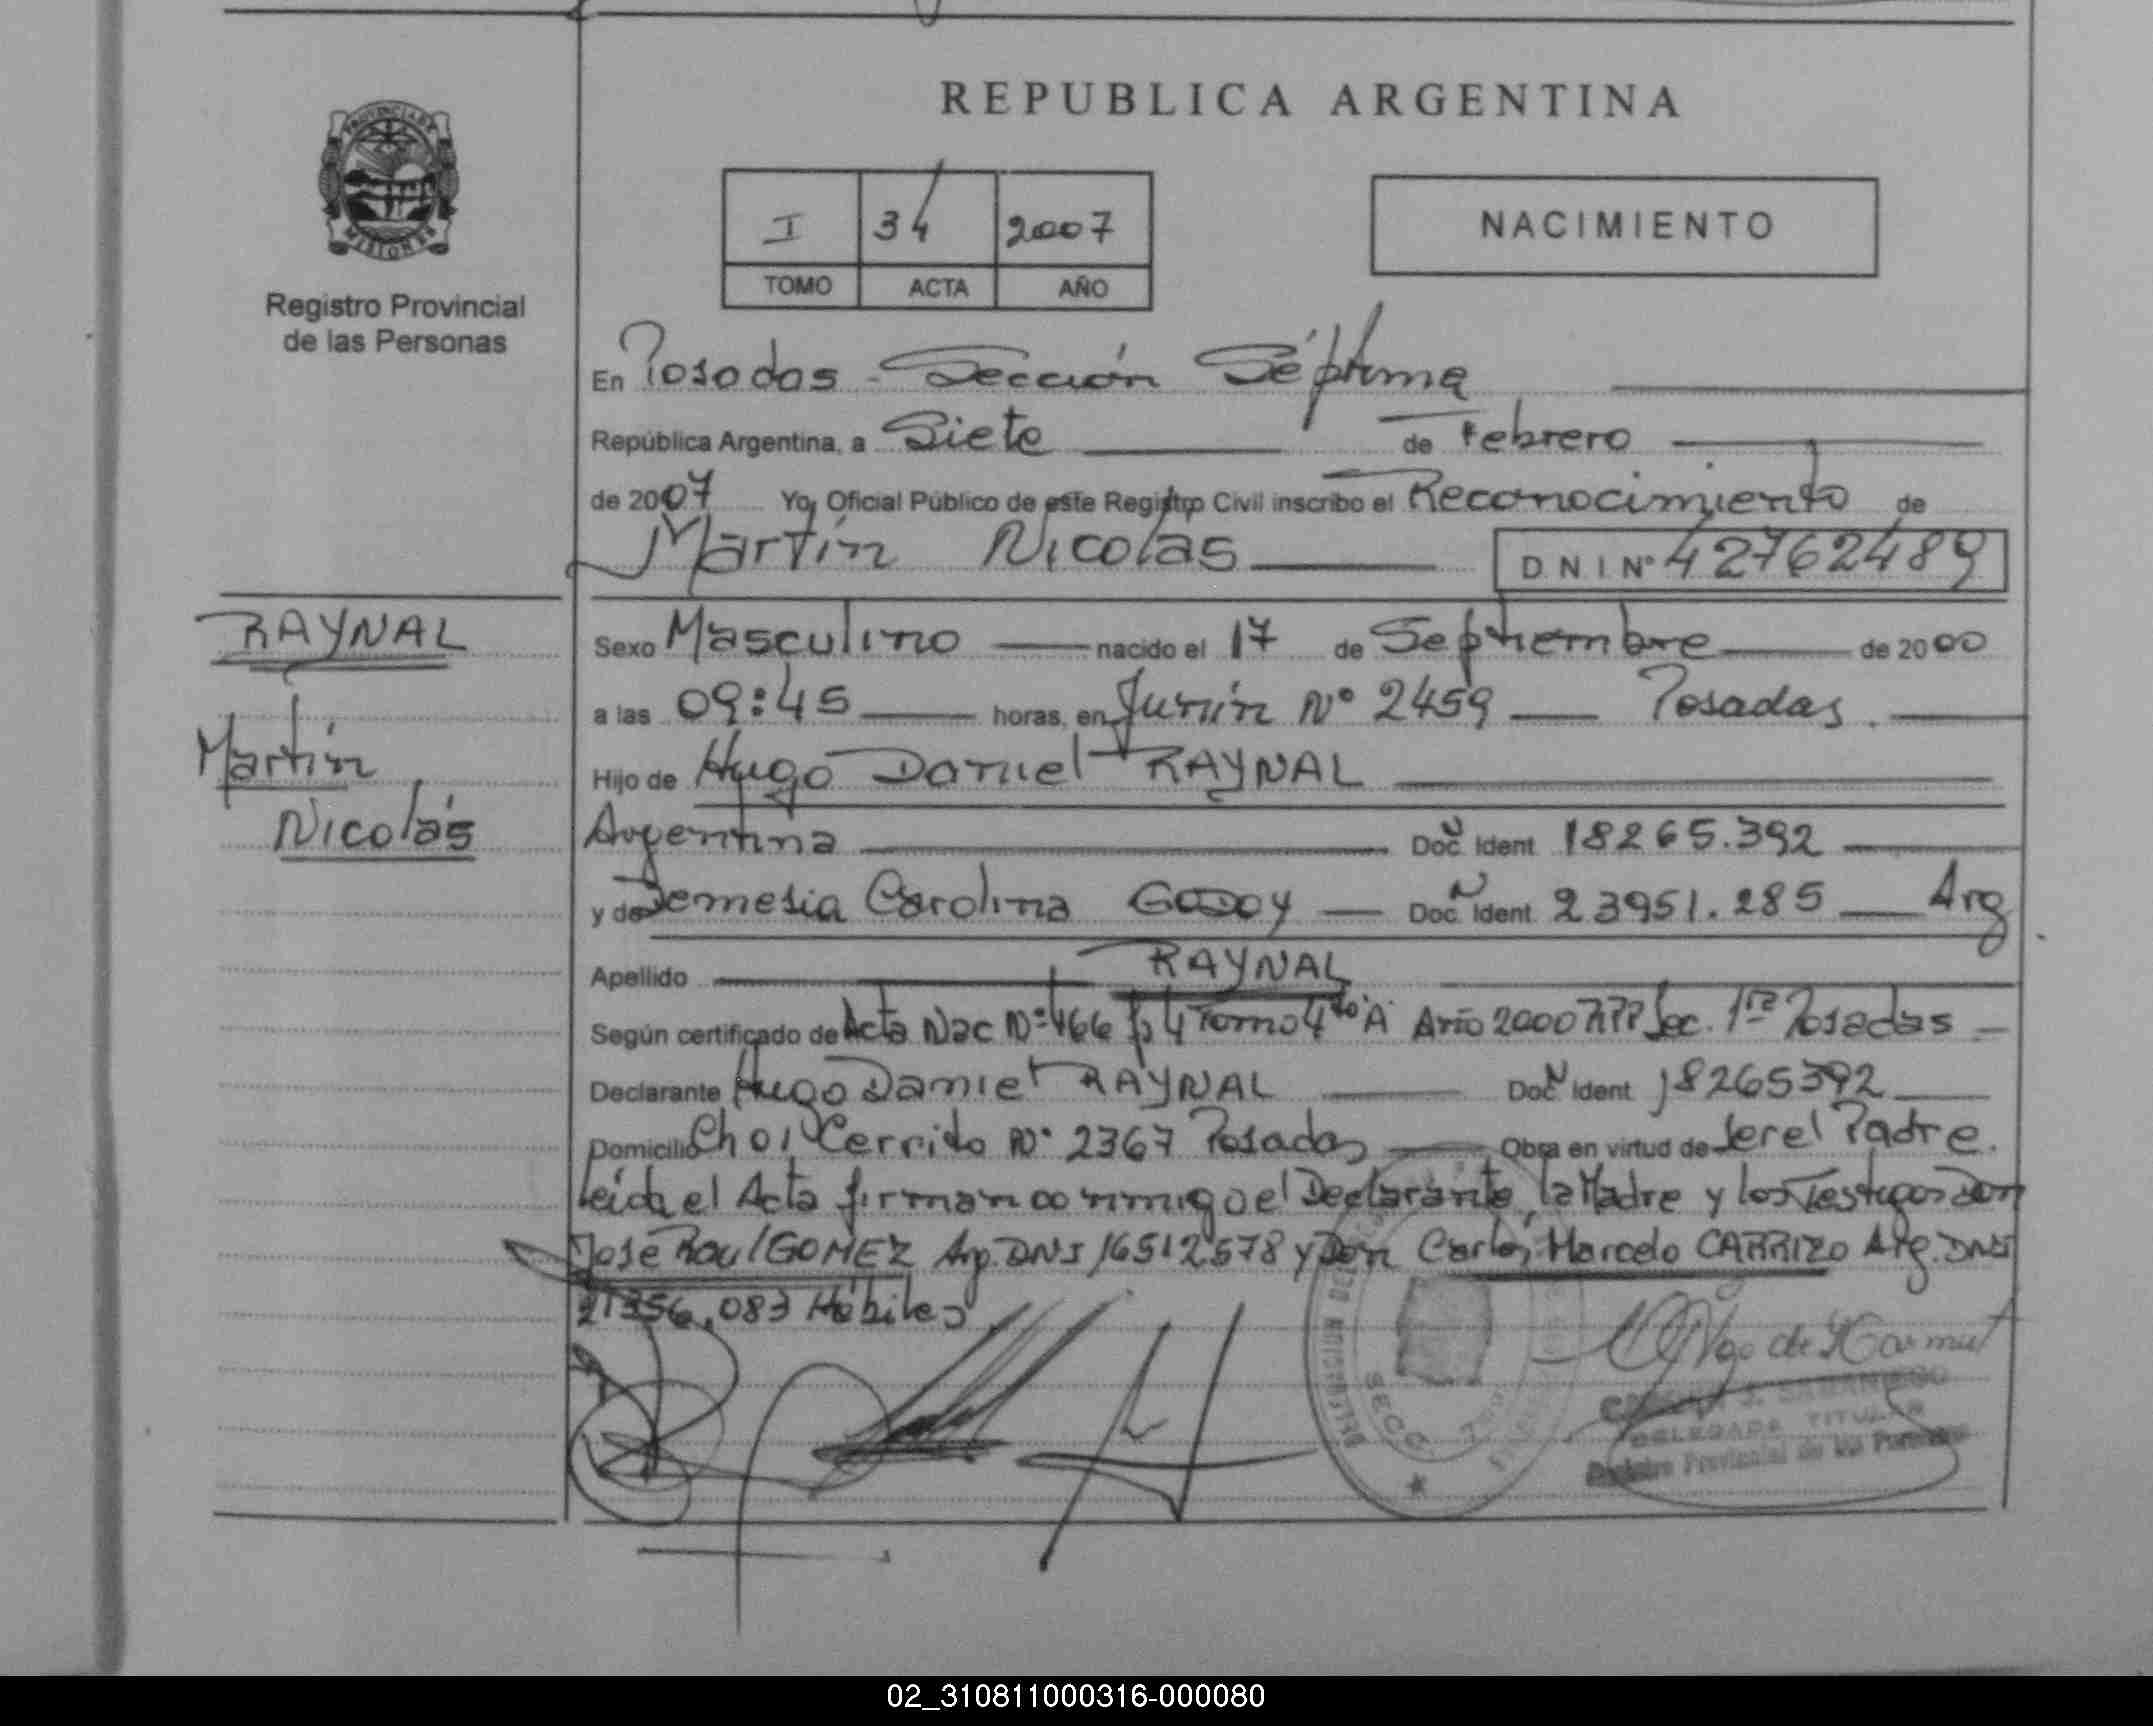 REPUBLICA ARGENTINA
PROVINCIA DE
MISIONES
Registro Provincial
de las Personas
I 34 2007
TOMO ACTA AÑO
NACIMIENTO
En Posadas - Sección Séptima
República Argentina, a Siete de Febrero
de 2007 Yo, Oficial Público de este Registro Civil inscribo el Reconocimiento de
Martín Nicolás D N I Nº 42762489
RAYNAL
Martín
Nicolás
Sexo Masculino nacido el 17 de Septiembre de 2000
a las 09:45 horas, en Junín Nº 2459 Posadas.
Hijo de Hugo Daniel RAYNAL
Argentina Doc. Ident 18265.392
y de Demesia Carolina GODOY Doc. Ident 23951.285 Arg
Apellido RAYNAL
Según certificado de Acta Nac Nº 466 Tomo 4to A Año 2000 RPP Sec. 1ra Posadas
Declarante Hugo Daniel RAYNAL Doc. Ident 18265392
Domicilio Cerrito Nº 2367 Posadas Obra en virtud de ser el Padre.
Leída el Acta firman conmigo el Declarante, la Madre y los Testigos Don
José Raul GOMEZ Arg. DNI 16512578 y Don Carlos Marcelo CARRIZO Arg. DNI
21356.083 Hábiles
SECC
DELEGADA TITULAR
Registro Provincial de las Personas
02_310811000316-000080